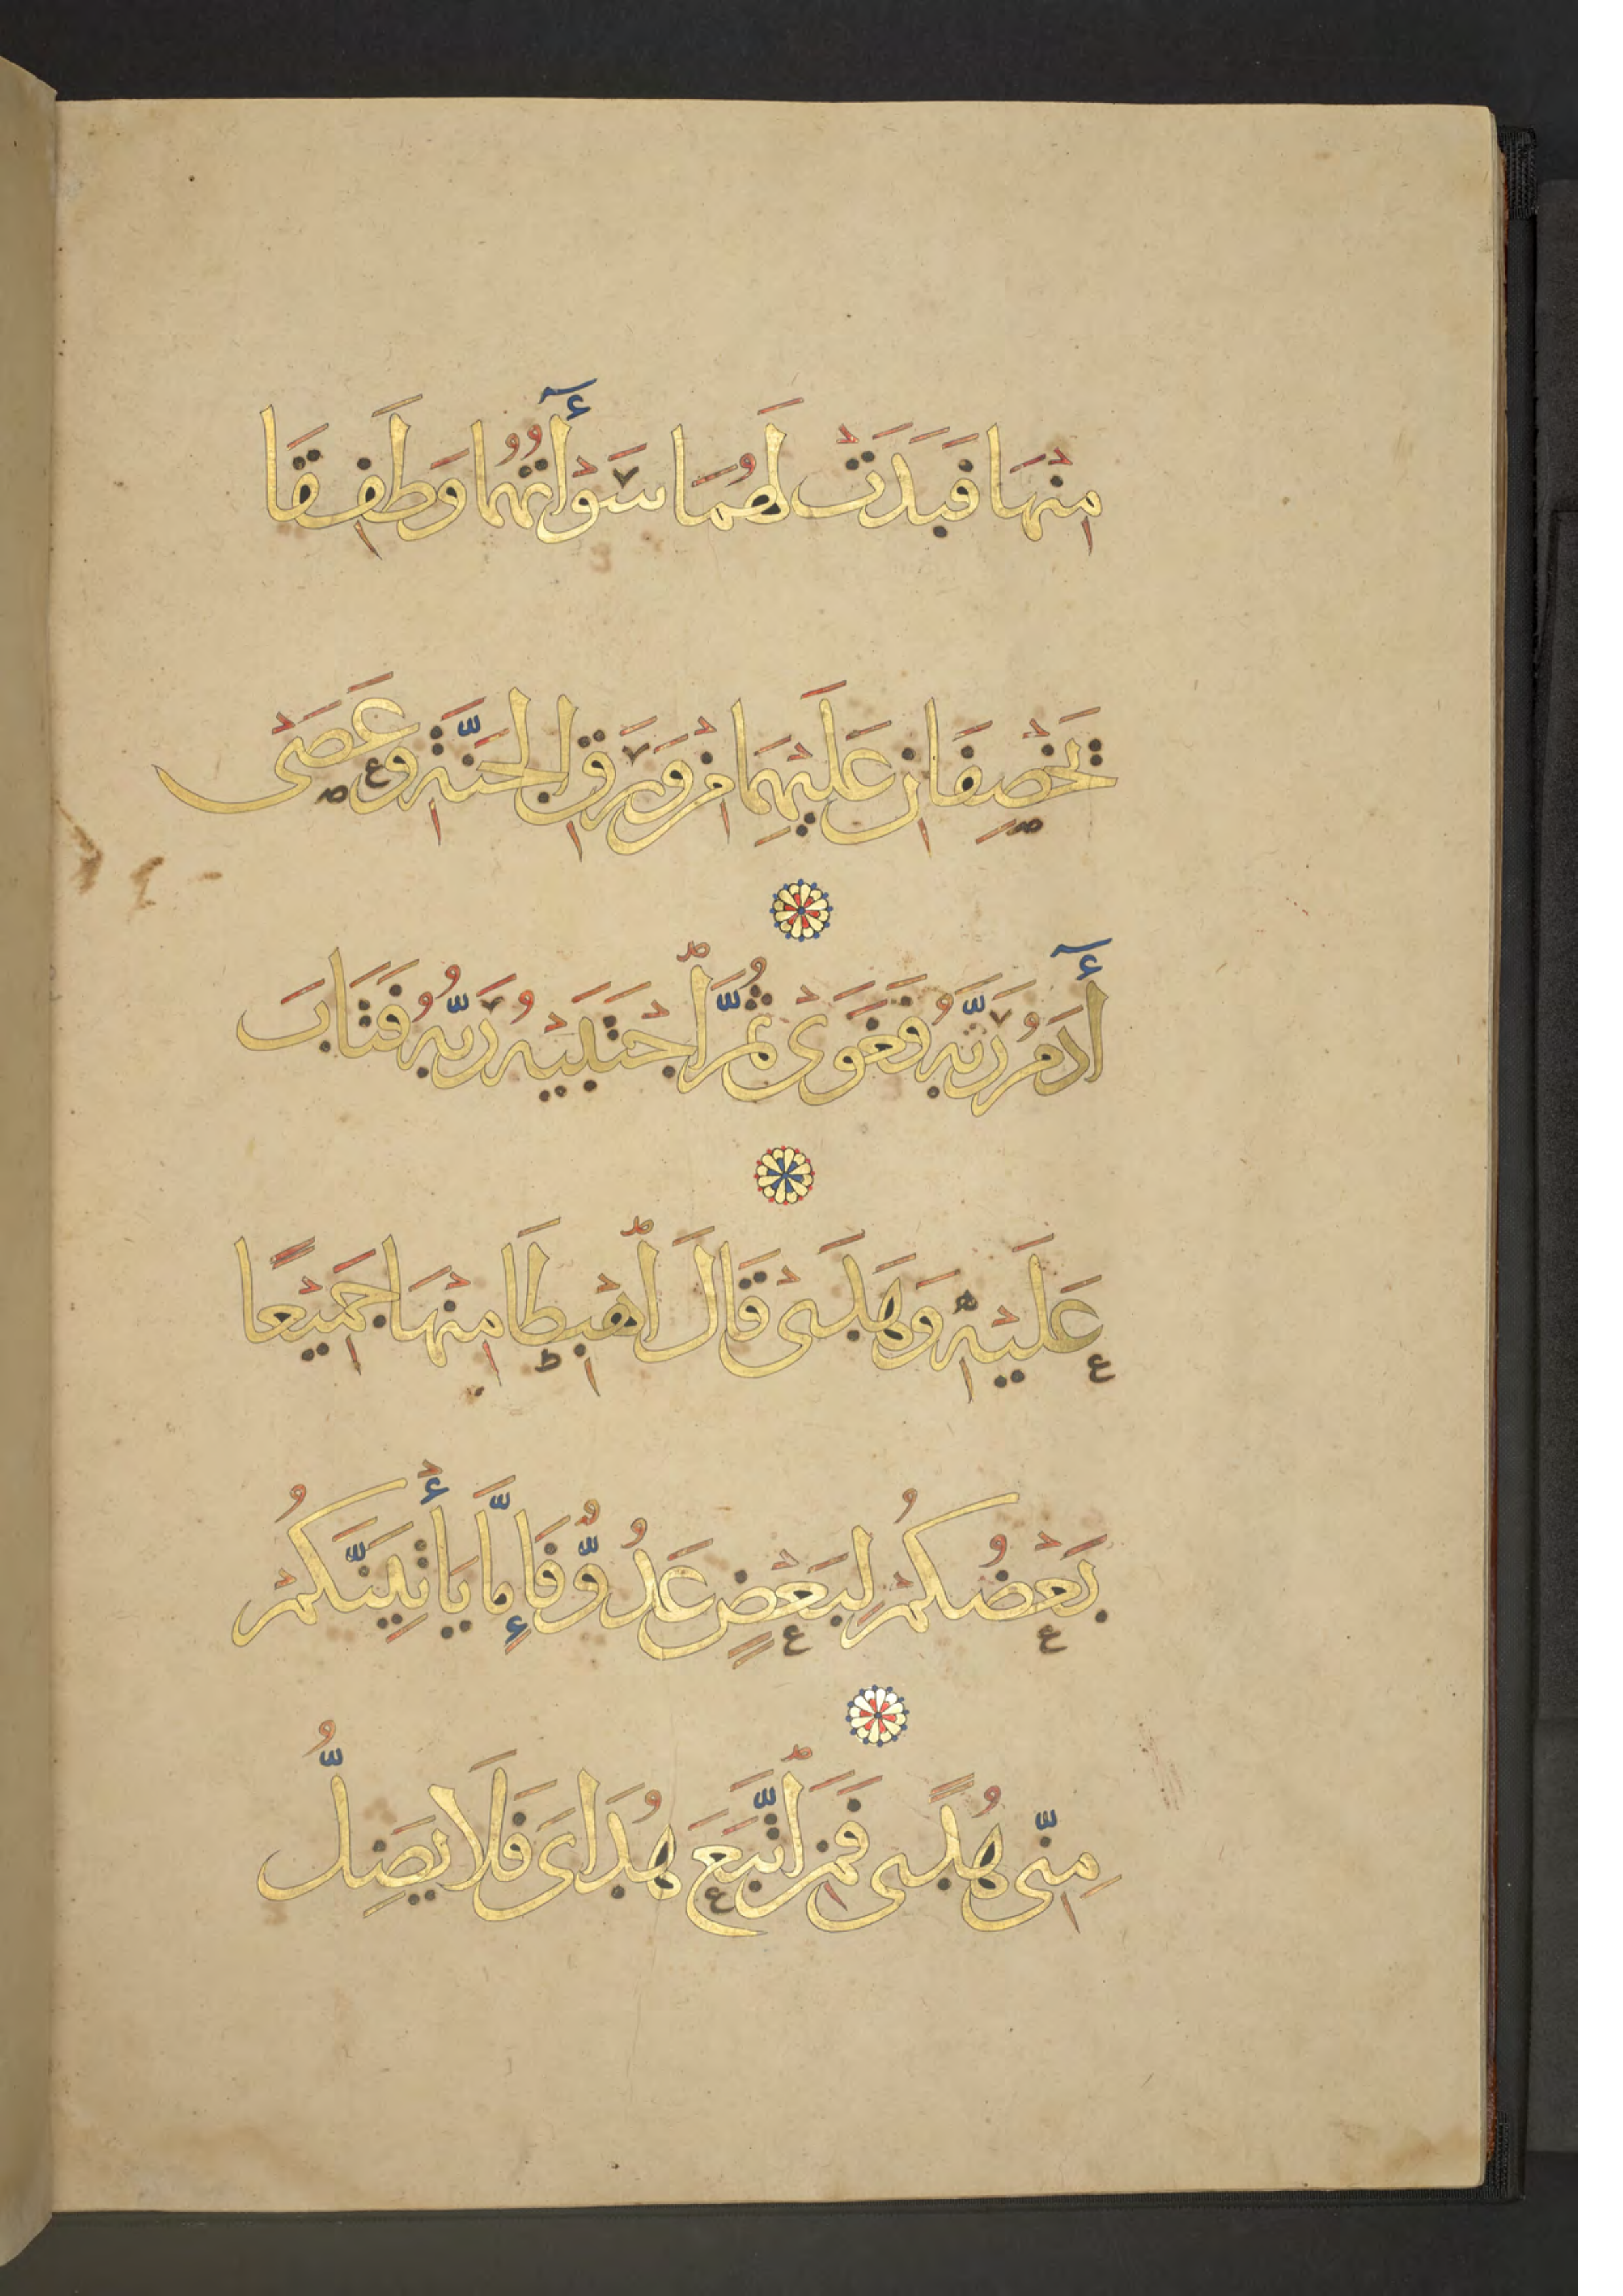 مِنْهَا فَبَدَتْ لَهُمَا سَوْأَٰتُهُمَا وَطَفِقَا
يَخْصِفَانِ عَلَيْهِمَا مِنْ وَرَقِ الْجَنَّةِ وَعَصَىٰ
أٰدَمُ رَبَّهُ فَغَوَىٰ ثُمَّ ٱجْتَبَيٰهُ رَبُّهُ فَتَابَ
عَلَيْهِ وَهَدَىٰ قَالَ ٱهْبِطَا مِنْهَا جَمِيْعًا
بَعْضُكُمْ لِبَعْضٍ عَدُوٌّ فَإِمَّا يَأْتِيَنَّكُمْ
مِنِّى هُدًى فَمَنِ ٱتَّبَعَ هُدَاىَ فَلَا يَضِلُّ